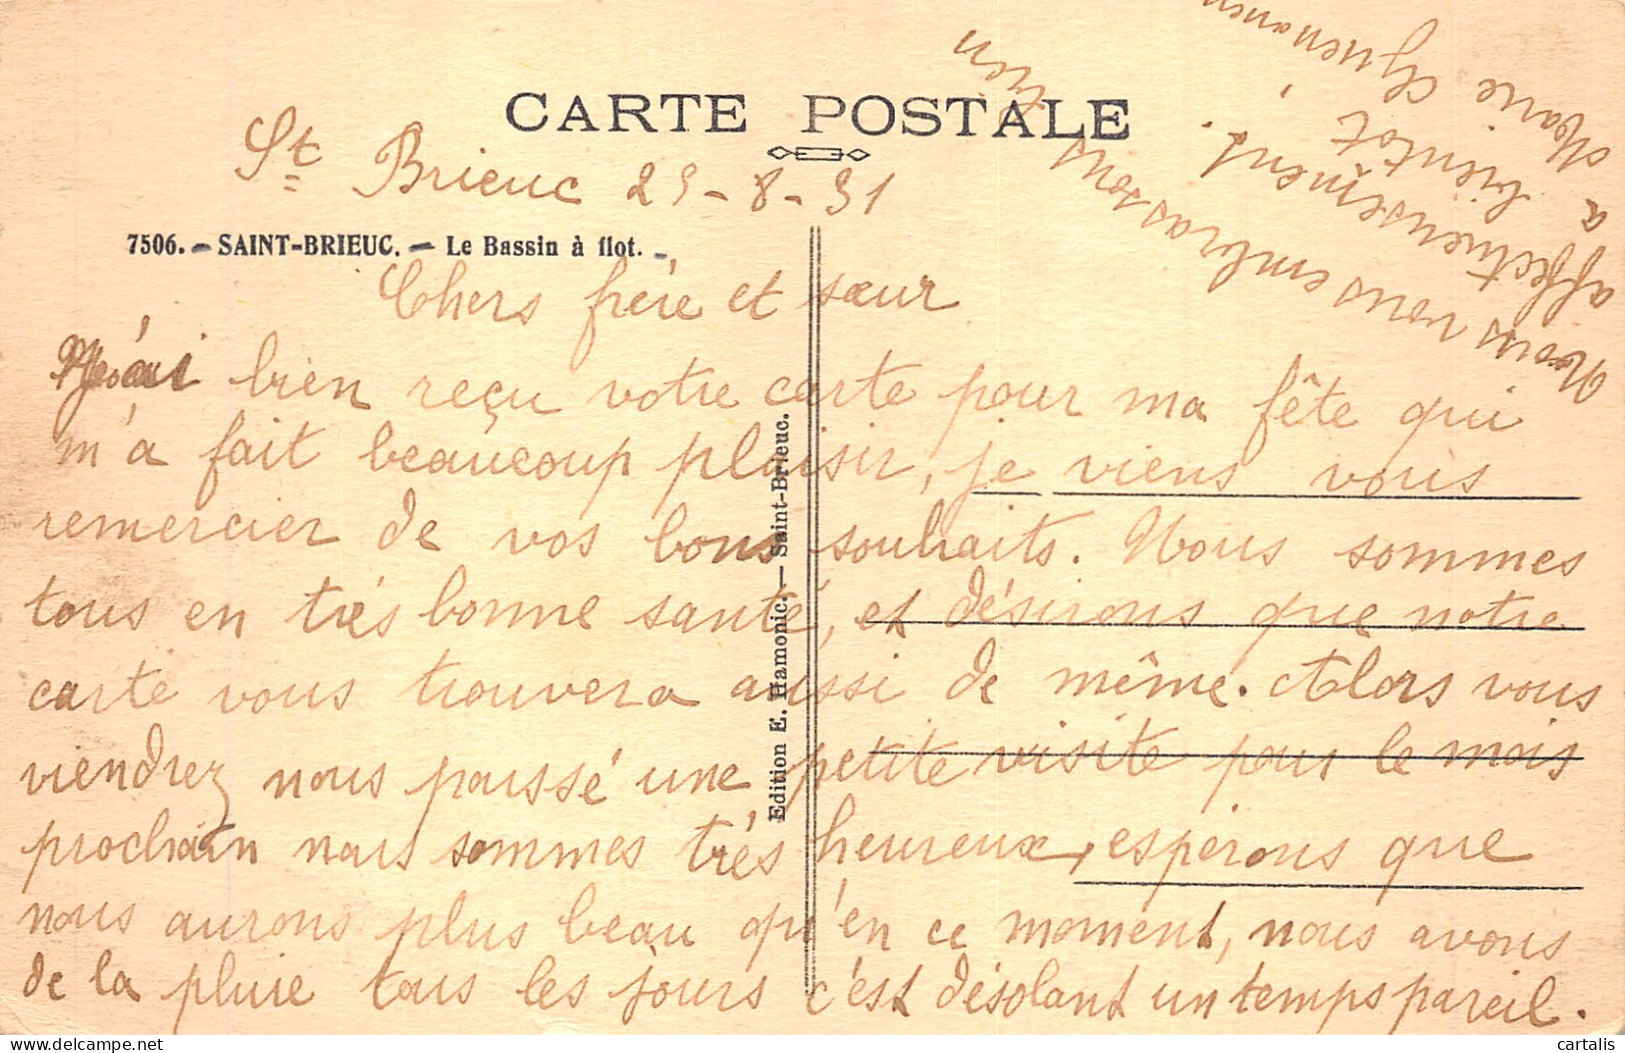 CARTE POSTALE
St Brieuc 25-8-31
7506. - SAINT-BRIEUC. - Le Bassin à flot. -
Chers frère et sœur
J'ai bien reçu votre carte pour ma fête qui
m'a fait beaucoup plaisir, je viens vous
remercier de vos bons souhaits. Nous sommes
tous en très bonne santé, et désirons que notre
carte vous trouvera aussi de même. Alors vous
viendrez nous passé une petite visite pour le mois
prochain nous sommes très heureux, esperons que
nous aurons plus beau qu'en ce moment, nous avons
de la pluie tous les jours c'est désolant un temps pareil.
Nous vous embrassons bien
affectueusement.
a bientot
Marie
Edition E. Hamonic. - Saint-Brieuc.
cartalis